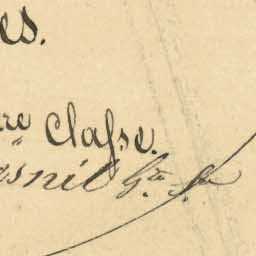 es.
re Classe.
esnil